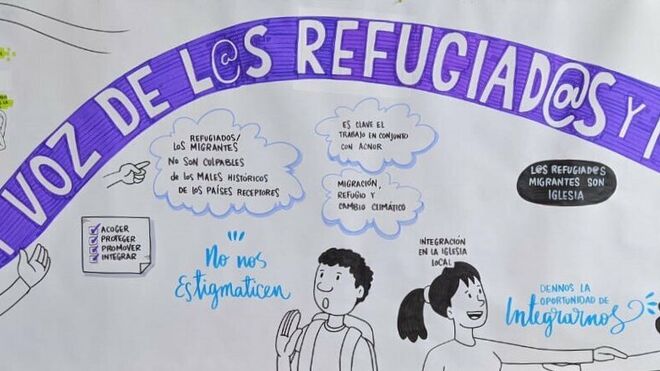 VOZ DE L@S REFUGIAD@S Y
REFUGIADOS/
LOS MIGRANTES
NO SON CULPABLES
de LOS MALES HISTÓRICOS
DE LOS PAÍSES RECEPTORES
ES CLAVE EL
TRABAJO EN CONJUNTO
CON ACNUR
MIGRACIÓN,
REFUGIO Y
CAMBIO CLIMÁTICO
L@S REFUGIAD@S
MIGRANTES SON
IGLESIA
ACOGER
PROTEGER
PROMOVER
INTEGRAR
No nos
Estigmaticen
INTEGRACIÓN
EN LA IGLESIA
LOCAL
DENNOS LA
OPORTUNIDAD DE
Integrarnos